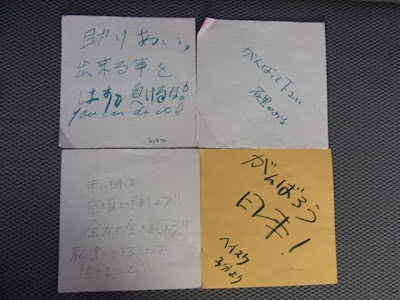 助けあい、
出来る事を
します。負けるな!
you can do it!
がんばって下さい
辛い時は
空を見上げましょう!!
全力で生きましょう!!
私達にできることは
生きること!!
がんばろう
日本!
ヘイスケ